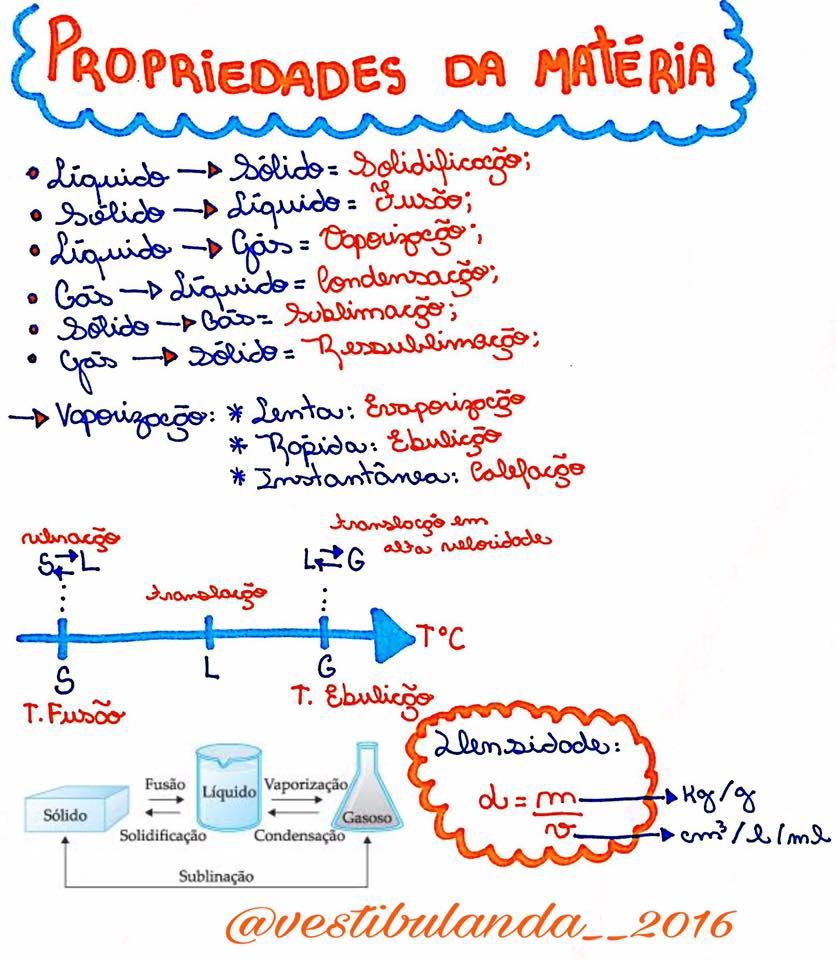 PROPRIEDADES DA MATÉRIA
• Líquido → Sólido = Solidificação;
• Sólido → Líquido = Fusão;
• Líquido → Gás = Vaporização;
• Gás → Líquido = Condensação;
• Sólido → Gás = Sublimação;
• Gás → Sólido = Ressublimação;
→ Vaporização: * Lenta: Evaporização
* Rápida: Ebulição
* Instantânea: Calefação
vibração
translação em
alta velocidade
S ⇄ L
L ⇄ G
translação
T°C
S
L
G
T. Fusão
T. Ebulição
Densidade:
d = m → Kg/g
v → cm³/l/ml
Sólido
Fusão
Solidificação
Líquido
Vaporização
Condensação
Gasoso
Sublinação
@vestibulanda__2016